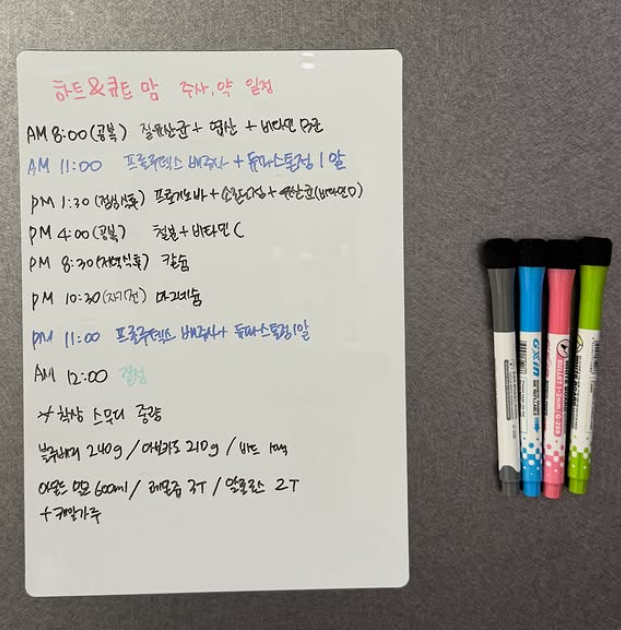 하트&큐트 맘 주사, 약 일정
AM 8:00 (공복) 질유산균 + 엽산 + 비타민 B군
AM 11:00 프롤루텍스 배주사 + 듀파스톤정 1알
PM 1:30 (점심식후) 프로기노바 + 소론도정 + 유산균(비타민D)
PM 4:00 (공복) 철분 + 비타민 C
PM 8:30 (저녁식후) 칼슘
PM 10:30 (자기전) 마그네슘
PM 11:00 프롤루텍스 배주사 + 듀파스톤정 1알
AM 12:00 질정
착상 스무디 중량
블루베리 240g / 아보카도 210g / 비트
아몬드 600ml / 레몬즙 3T / 알룰로스 2T
+ 케일가루